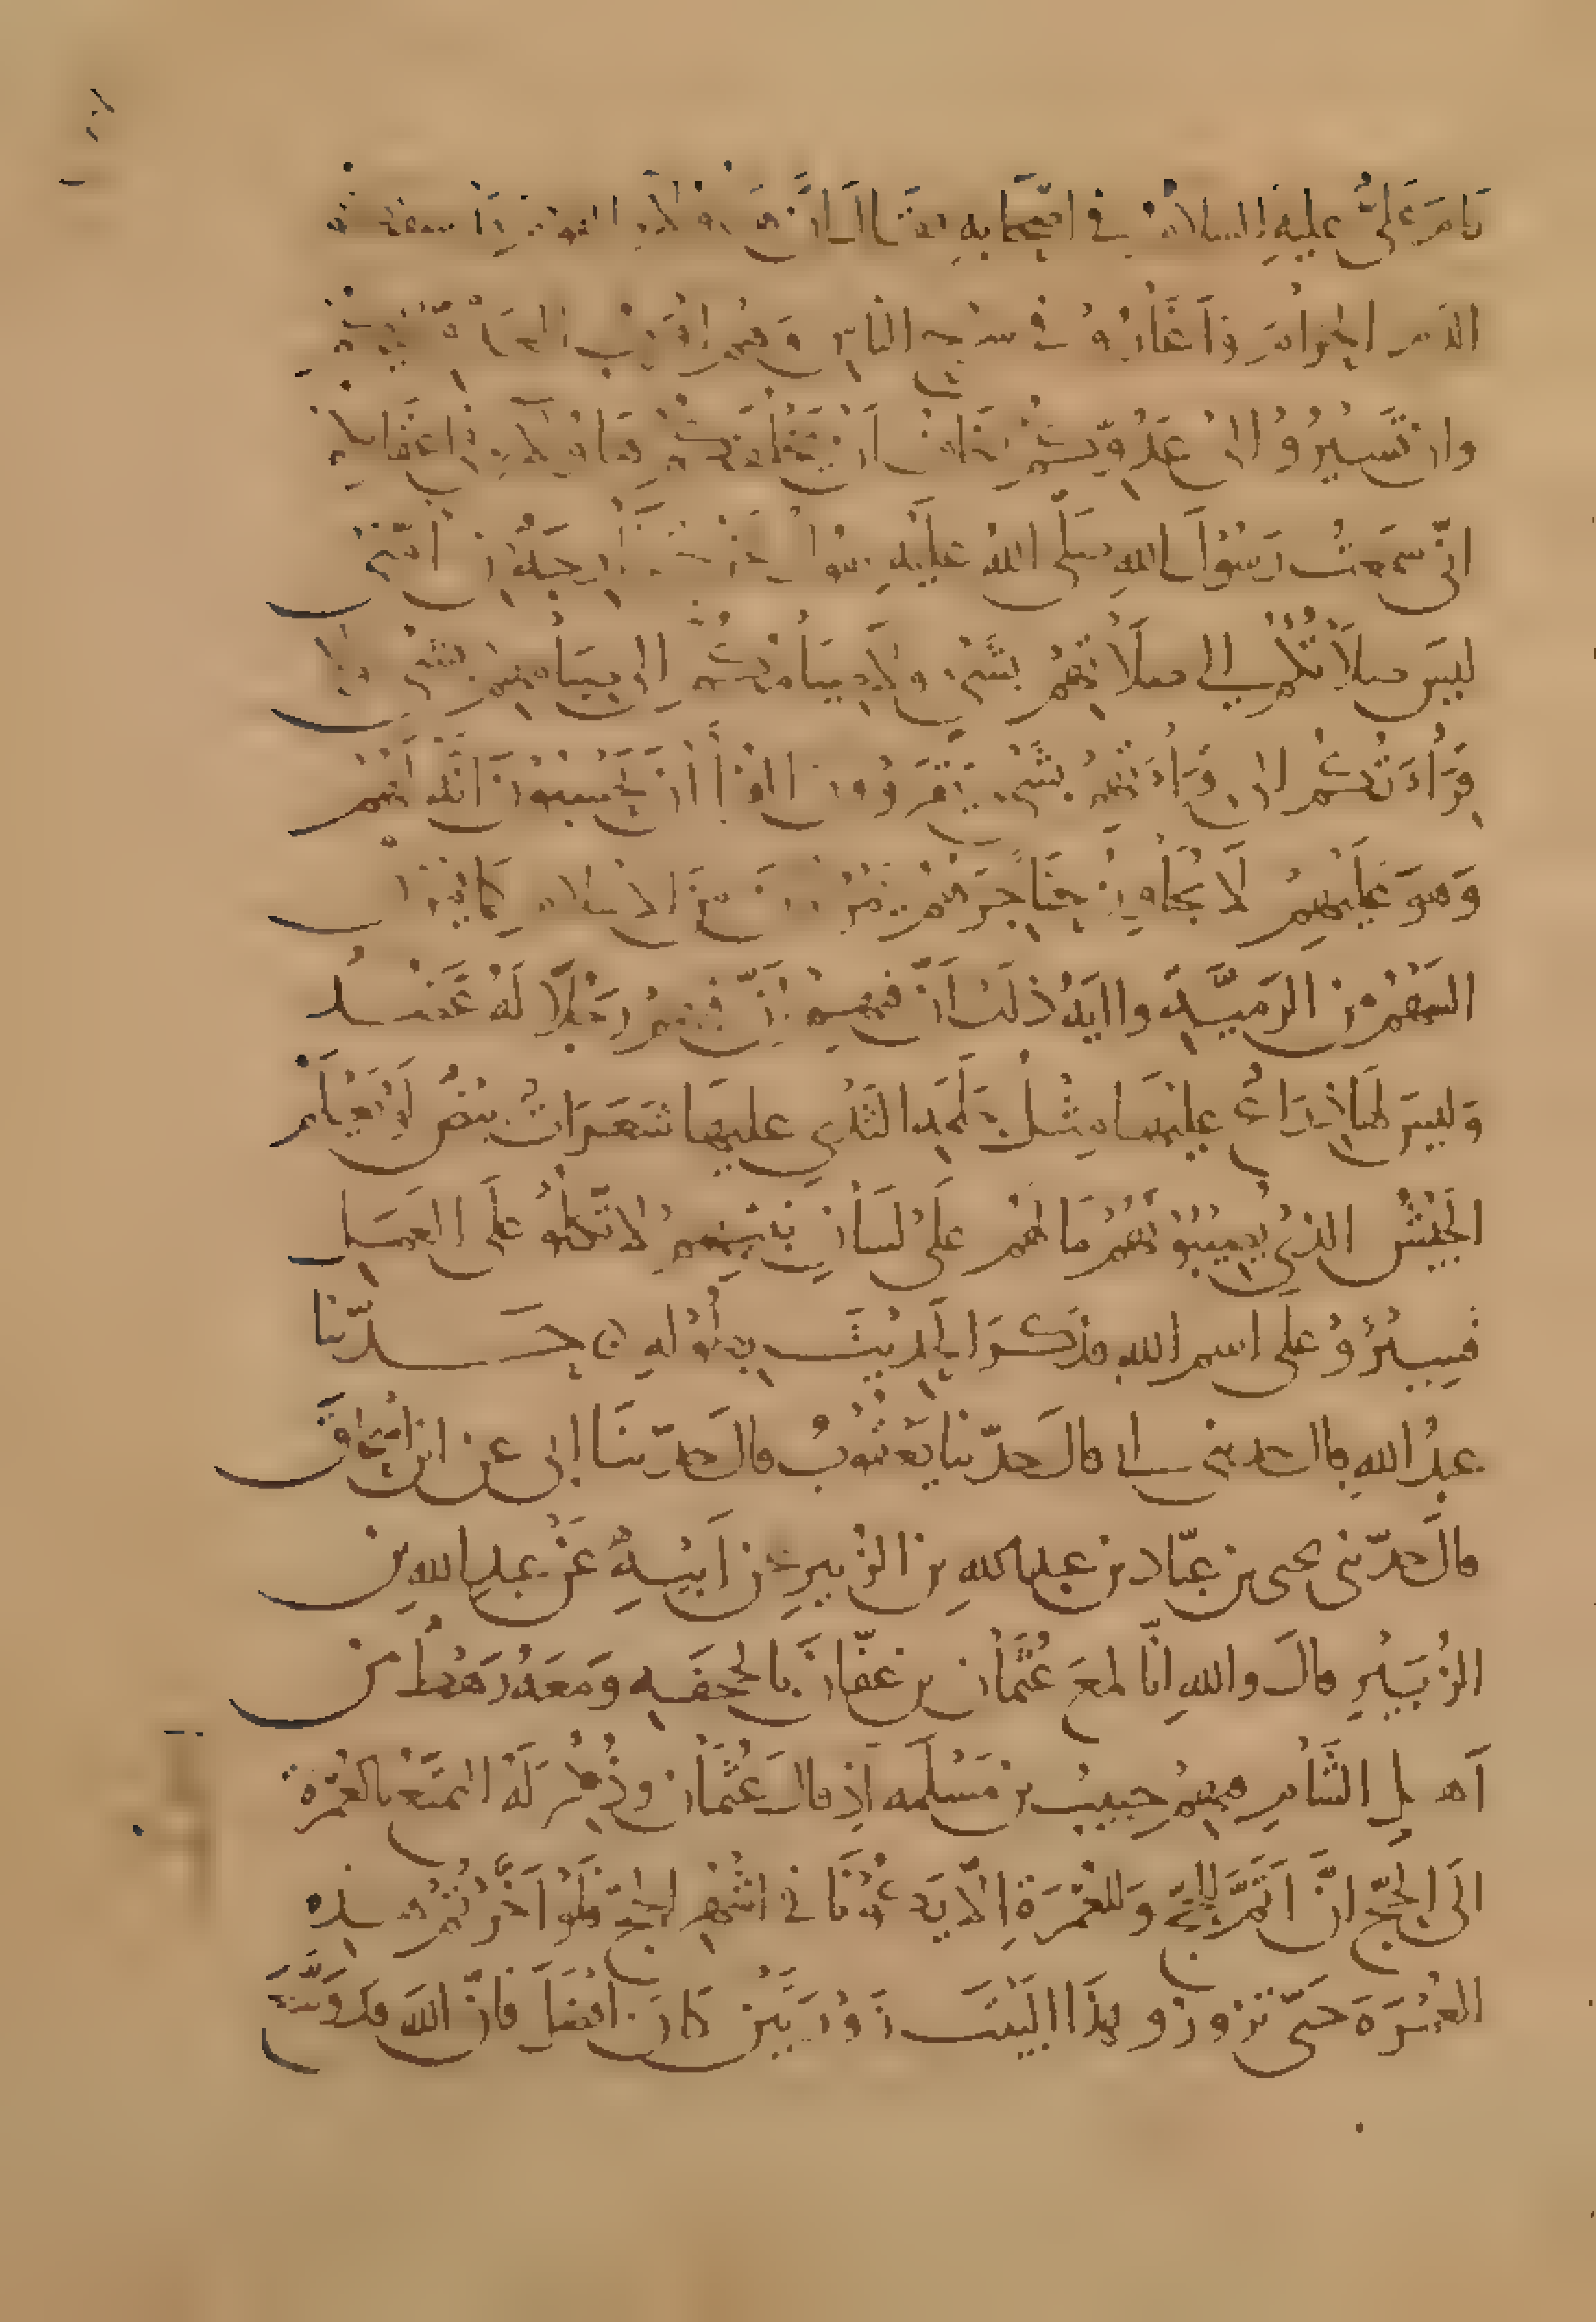 قامَ عَلىٌّ عليهِ السلامُ في اصحابه فقال انّ هؤلاء القوم قد سفكوا
الدم الحرامَ وَاَغَارُوْ في سرح الناس وَهُم اقربُ العدوّ
وان تَسِيرُوْ الى عَدُوِّكُمْ يخاف اَن يَخلفكُمْ هاولاءِ في اعقابكم
انّى سَمعتُ رَسُوْلَ اللهِ صلَّى اللهُ عَلَيْهِ يقول تخرج خارجةٌ من اُمّتى
ليسَ صلاَتُكُمْ الى صلَاتهم بشَىْءٍ ولا صيَامُكُمْ الى صيَامهم بشىءٍ ولا
قِرَاءَتُكُم الى قِرَاءَتهم بشَىْءٍ يَقرَؤُونَ القرأن يَحْسبُوْنَ انّه لَهُمْ
وَهوَ عَلَيْهِمْ لَا يُجَاوِزُ حَنَاجِرَهُمْ يَمْرُقُونَ مِنَ الاسْلام كَمَا يَمرُق
السَهْمُ من الرَميَّةِ واايةُ ذلك اَنّ فيهم رَجُلًا لَهُ عَضُدٌ
وَليسَ لهَا ذِرَاعٌ عليهَا مِثلُ حَلَمَةِ الثَدْىِ عليهَا شَعَرَاتٌ بِيْضٌ لَوْ يَعْلَمُ
الجَيْشُ الذى يُصِيبُوْنَهُم مَا لهُم عَلَىْ لِسَانِ نَبِيّهِمْ لاتّكلُوْ على العَمَلِ
فَسِيْرُوْ على اسم الله فذكرَ الحَدِيْثَ بِطُوْلهِ ۞ حَدّثنا
عبدُ اللهِ قال حدثنى ابى قالَ حدّثنا يَعْقُوْبُ قالَ حدّثنَا ابى عن ابن اِسْحَاقَ
قالَ حدّثنى يحيى بن عبّاد بن عبد اللهِ بن الزُبيرِ عن اَبِيْهِ عَنْ عبدِ اللهِ بن
الزُبَيْرِ قالَ واللهِ انّا لمعَ عُثْمَانَ بن عفّانَ بالجحفَهِ وَمَعَهُ رَهْطٌ من
اَهلِ الشَامِ فيهِمْ حبيبُ بن مَسْلَمه اِذ قال عُثْمَان وذُكِرَ لَهُ التَمَتّعُ بالعُمْرَة
الَى الحجّ انَّ اَتَمَّ للحجّ وَللعُمْرَةِ الّا يَكُوْنَا في اشْهُرِ الحجّ فلَوْ اَخَّرْتُمْ هذِهِ
العُمْرَةَ حَتّى تزورُو هذَا البَيْتَ زَوْرَتَيْن كَانَ افْضَلَ فانّ اللهَ قد وَسَّعَ